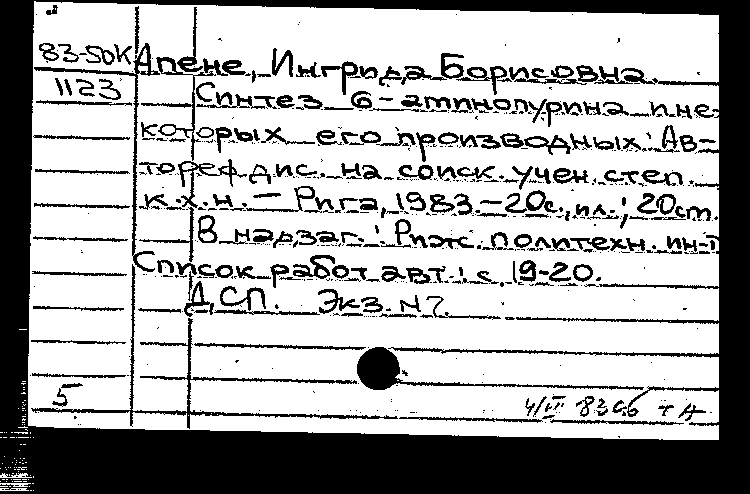 83-50К Апене, Ингрида Борисовна.
1123 Синтез 6-аминопурина и не-
которых его производных: Ав-
тореф. дис. на соиск. учен. степ.
к.х.н. — Рига, 1983. — 20с., ил.; 20 см.
В надзаг.: Риж. политехн. ин-т
Список работ авт.: с. 19-20.
ДСП. Экз. N 7.
5
4/III 83